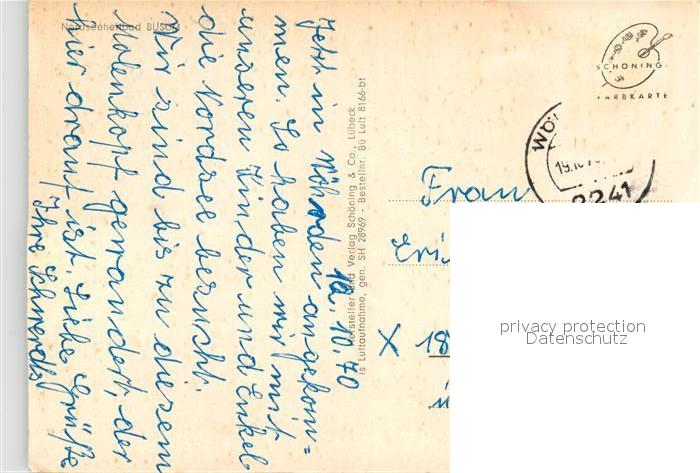 Nordseeheilbad BÜSUM
Wöhrden 18.10.70
Jetzt in angekom=
men. So haben wir mit
unseren Kinder und Enkel
die Nordsee besucht.
Wir sind bis zu diesem
Molenkopf gewandert, der
hier drauf ist. Liebe Grüße
Ihre Schwerdts
Hersteller und Verlag Schöning & Co., Lübeck
Luftaufnahme, gen. SH 28969 - Bestellnr. Bü Luft 8166-bt
SCHÖNING
FARBKARTE
WÖ
19.10.70
2241
Frau
Eri
X 18
privacy protection
Datenschutz